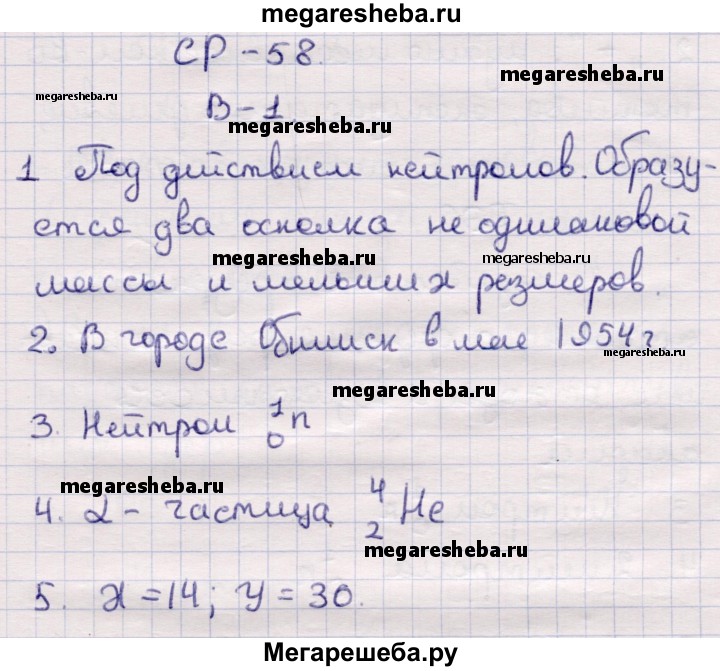 megaresheba.ru
СР-58.
megaresheba.ru
megaresheba.ru
В-1.
megaresheba.ru
1 Под действием нейтронов. Образу-
ется два осколка не одинаковой
megaresheba.ru
megaresheba.ru
массы и меньших резмеров.
2. В городе Обнинск в мае 1954 г
megaresheba.ru
megaresheba.ru
3. Нейтрон ¹₀n
megaresheba.ru
4. α - частица ⁴₂He
megaresheba.ru
5. X = 14; Y = 30.
Мегарешеба.ру